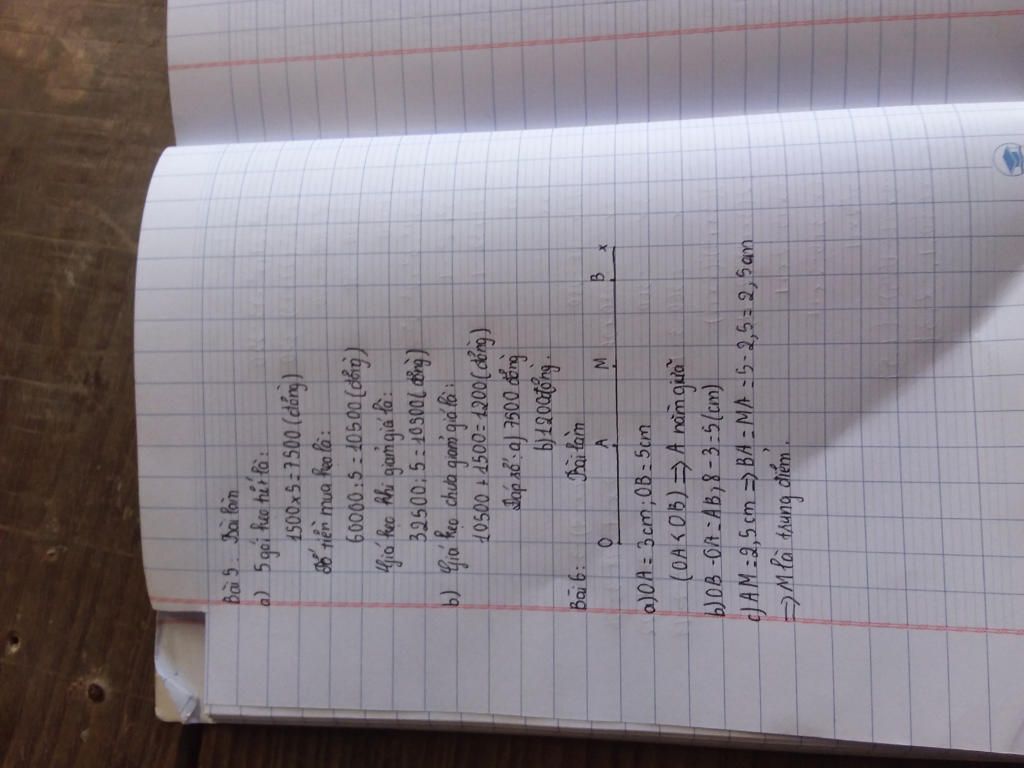 Bài 5: Bài làm
a) 5 gói kẹo hết là:
1500 x 5 = 7500 (đồng)
Số tiền mua kẹo là:
60000 : 5 = 10500 (đồng)
Giá kẹo khi giảm giá là:
32500 : 5 = 10500 (đồng)
b) Giá kẹo chưa giảm giá là:
10500 + 1500 = 1200 (đồng)
Đáp số: a) 7500 đồng
b) 1200 đồng.
Bài 6: Bài làm
O A M B x
a) OA = 3cm; OB = 5cm
(OA < OB) => A nằm giữa
b) OB - OA = AB, 8 - 3 = 5 (cm)
c) AM = 2,5cm => BA = MA = 5 - 2,5 = 2,5cm
=> M là trung điểm.